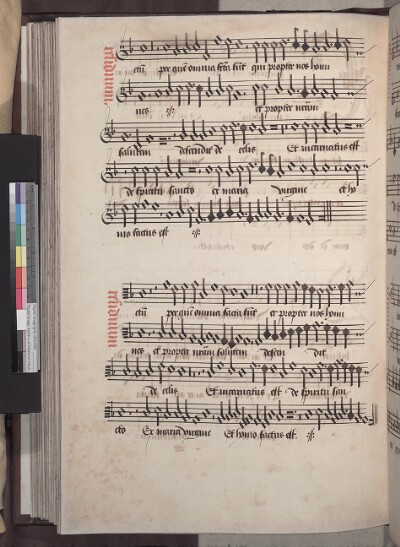 residuum
ctū per quē omnia fctā sūt qui propter nos homi
nes :ij: et propter nrām
salutem descendit de celis Et incarnatus est
de spiritu sancto ex maria virgine et ho
mo factus est :ij:
residuum
ctū per quē omnia facta sūt et propter nos homi
nes et propter nrām salutem descen dit
de celis Et incarnatus est de spiritu san
cto Ex maria virgine Et homo factus est :ij: